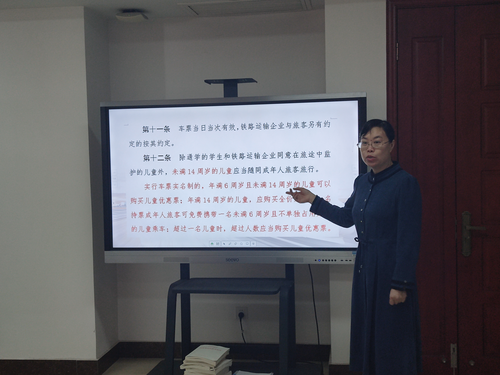 第十一条 车票当日当次有效,铁路运输企业与旅客另有约
定的按其约定。
第十二条 除通学的学生和铁路运输企业同意在旅途中监
护的儿童外,未满14周岁的儿童应当随同成年人旅客旅行。
实行车票实名制的,年满6周岁且未满14周岁的儿童可以
购买儿童优惠票;年满14周岁的儿童,应购买全价
持票成年人旅客可免费携带一名未满6周岁且不单独占用
的儿童乘车;超过一名儿童时,超过人数应当购买儿童优惠票。